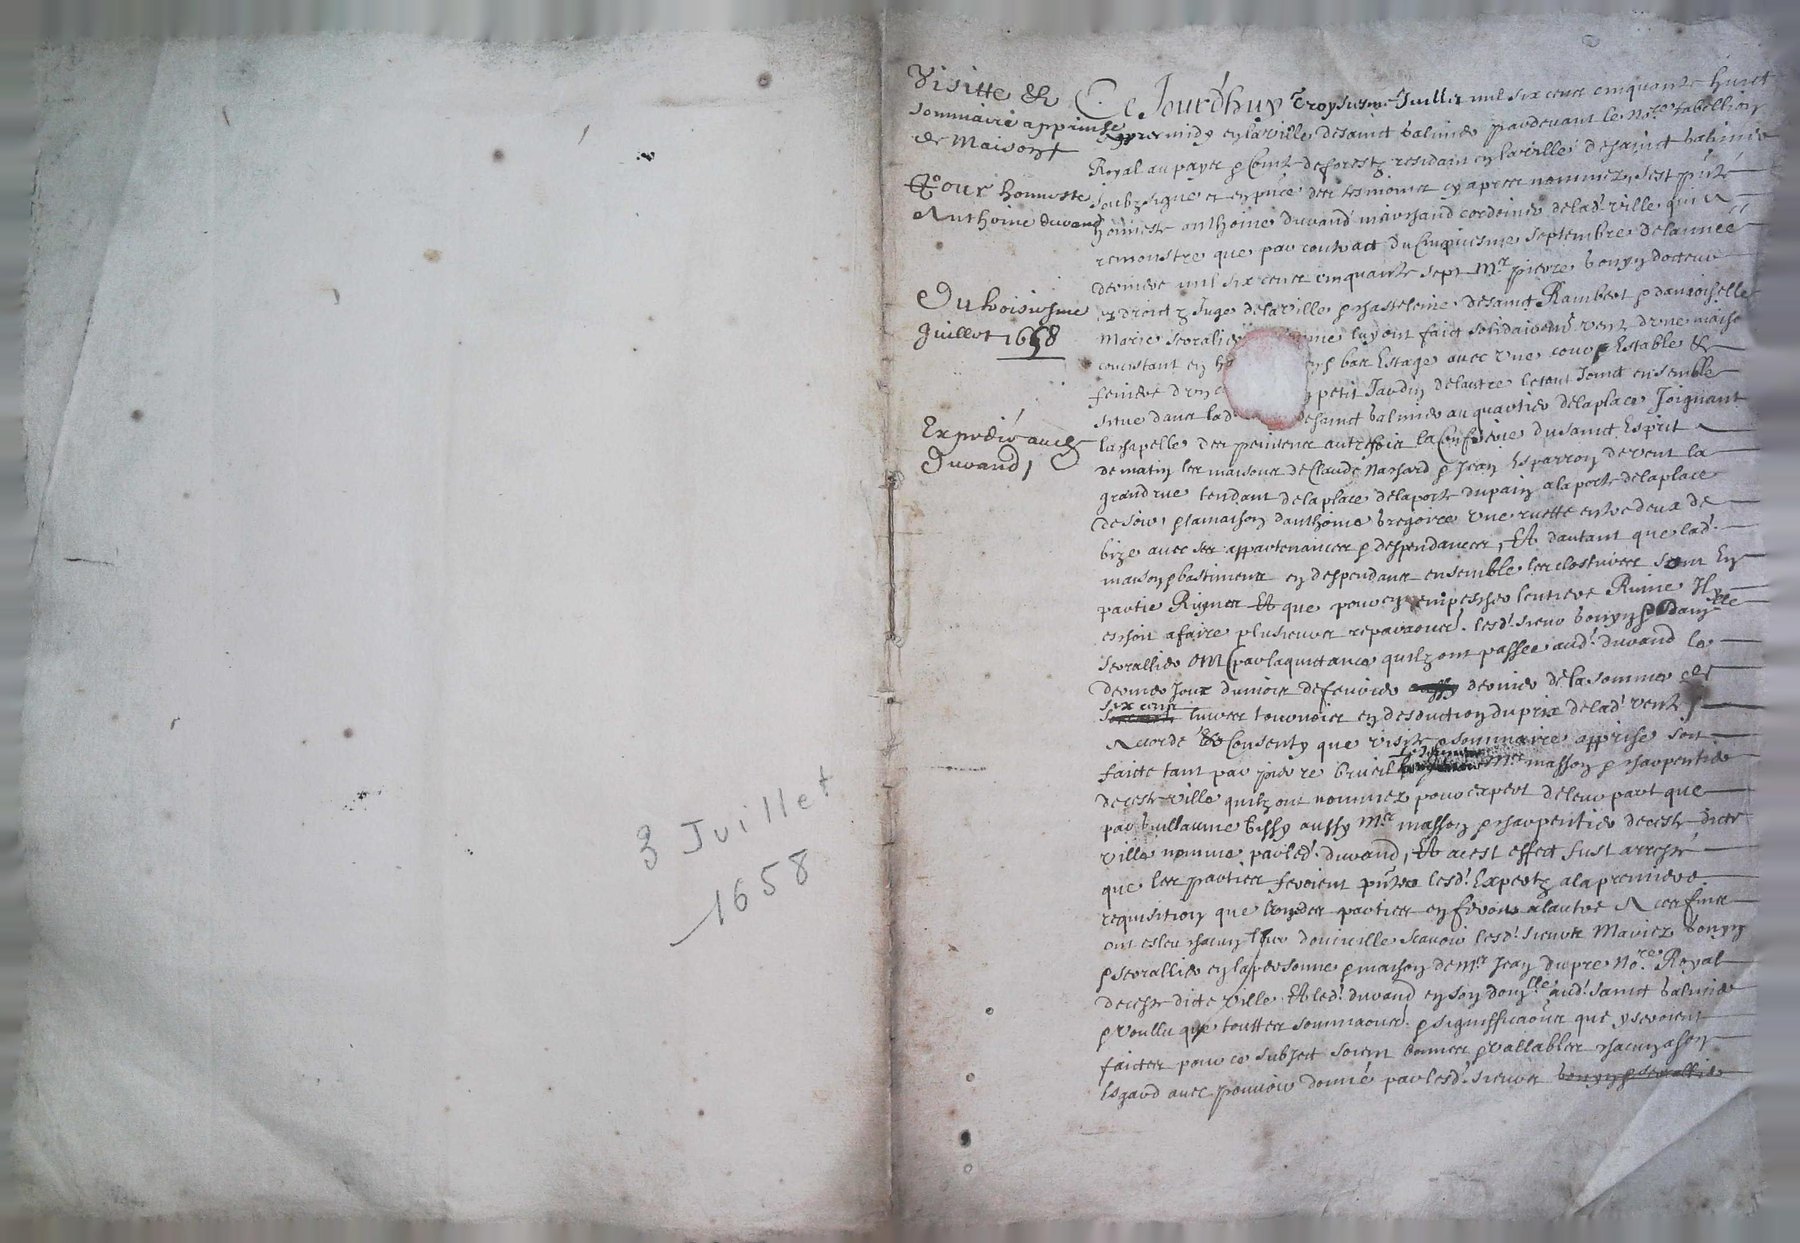 3 Juillet
1658
Visitte &
sommaire apprinse
de Maisons
Pour honneste
Anthoine durand
Du troisiesme
Juillet 1658
Expedié audit
Durand
Ce Jourdhuy troysiesme Juillet mil six cens cinquante huict
apres midy en la ville de sainct balmier pardevant le no.re tabellion
Royal au pays & Comté de forestz residant en la ville de sainct balmier
soubzsigné et en pnce des tesmoins cy apres nommez, sest pnté
honneste anthoine durand marchand cordonier de lad. ville qui a
remonstre que par contract du Cinquiesme septembre de lannee
derniere mil six cens cinquante sept Mr pierre bonyn docteur
es droictz Juge de la ville & chastelenie de sainct Rambert & damoiselle
Marie seorallier femme luy ont faict solidairemt vente dune maison
concistant en bas Estage avec une cour Estable &
feniere dun petit Jardin de lautre le tout Joinct ensemble
situé dans lad de sainct balmier au quartier de la place Joignant
la chapelle des penitens autrefois la Confrerie du sainct Esprit
de matin les maisons de Claude Massard & Jean Esparron de vent la
grand rue tendant de la place de la porte du pain a la porte de la place
de soir, & la maison danthoine bregoire une ruette entre deux de
bize avec ses appartenances & despendances, Et dautant que lad.
maison & bastimens en despendans ensemble les clostures sont En
partie Ruynes Et que pour en empescher lentiere Ruine Il
eschoit a faire plusieurs reparaons. lesd. sieur bonyn & dam.lle
seorallier ont par la quictance quilz ont passee aud. durand le
dernier Jour du mois de febvrier dernier de la somme de
six cens livres tournois en desduction du prix de lad. vente
Accordé & Consenty que visite & sommaire apprise soit
faicte tant par pierre brueil Mre masson & charpentier
de ceste ville quilz ont nommez pour expert de leur part que
par Guillaume bissy aussy Mre masson & charpentier de ceste dicte
ville nommé par led. durand, Et a cest effect fust arresté
que les parties feroient pnter lesd. Expertz a la premiere
requisition que lune des parties en feroit a lautre A ces fins
ont esleu chacun leur domicille scavoir lesd. sieurs Mariez bonyn
& seorallier en la personne & maison de Mr Jean dupre No.re Royal
de ceste dicte ville Et led. durand en son domi.lle aud. sainct balmier
& voullu que touttes sommaons. & signiffications que y seroient
faictes pour ce subject soient bonnes & vallables chacun a son
Esgard avec pouvoir donné par lesd. sieurs bonyn & seorallier